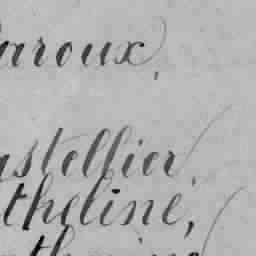 aroux,
stellier,
theline,